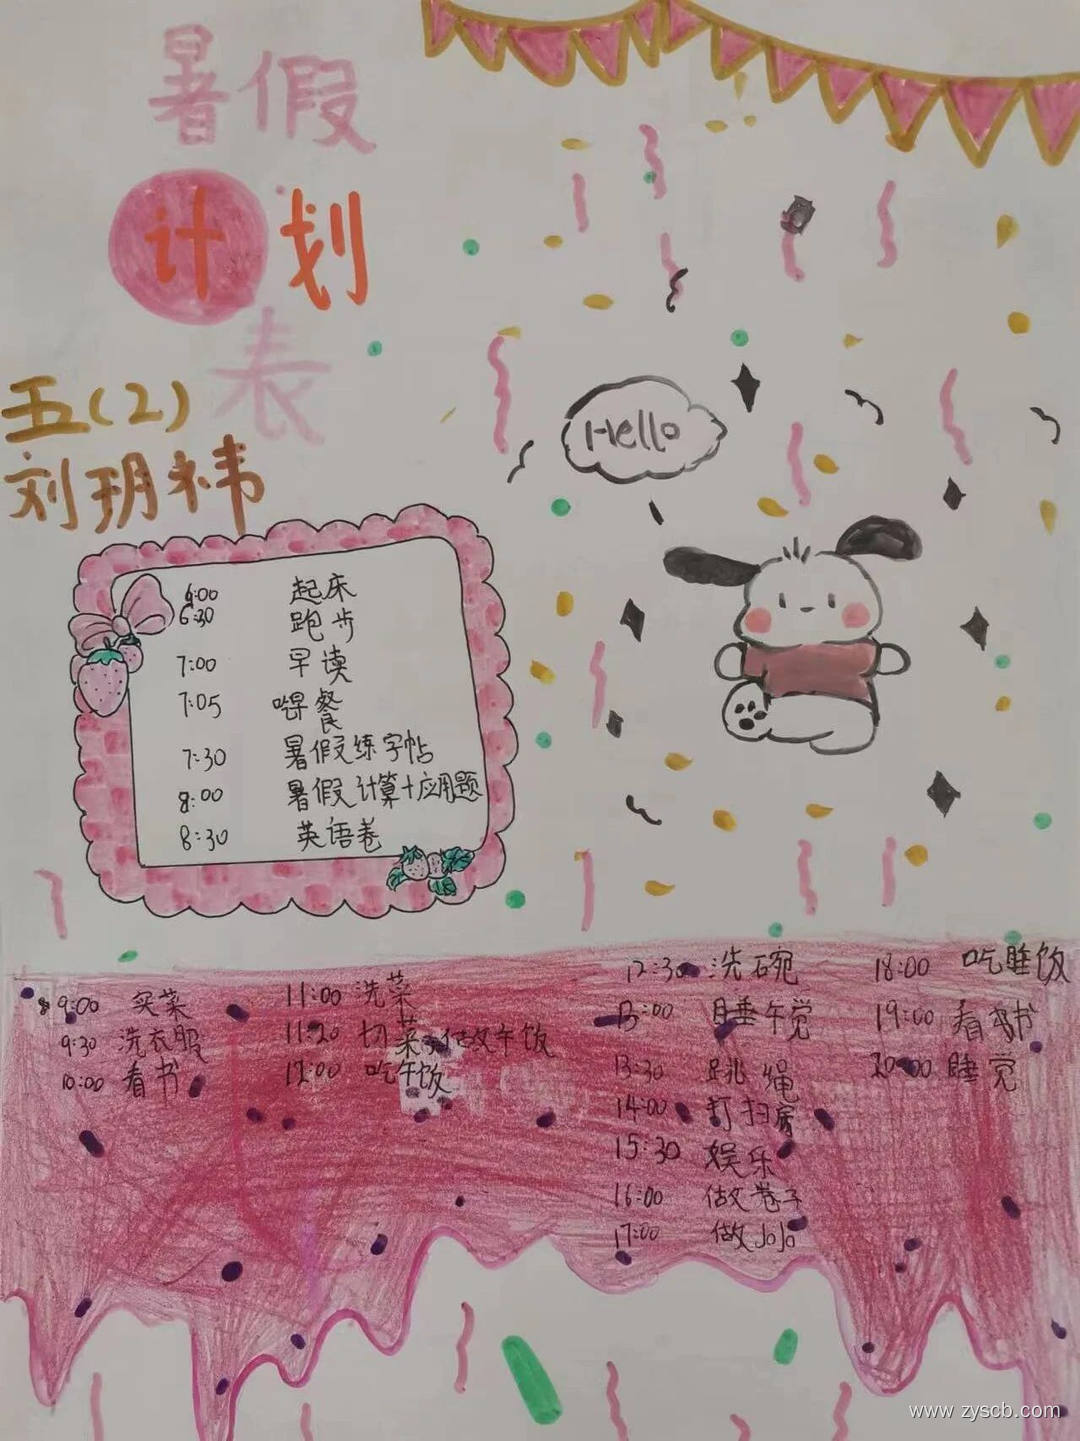 暑假
计划
表
五(2)
刘玥祎
Hello
6:00 起床
6:30 跑步
7:00 早读
7:05 早餐
7:30 暑假练字帖
8:00 暑假计算+应用题
8:30 英语卷
9:00 买菜
9:30 洗衣服
10:00 看书
11:00 洗菜
11:20 切菜做午饭
12:00 吃午饭
12:30 洗碗
13:00 睡午觉
13:30 跳绳
14:00 打扫房
15:30 娱乐
16:00 做卷子
17:00 做JoJo
18:00 吃睡饭
19:00 看书
20:00 睡觉
www.zyscb.com